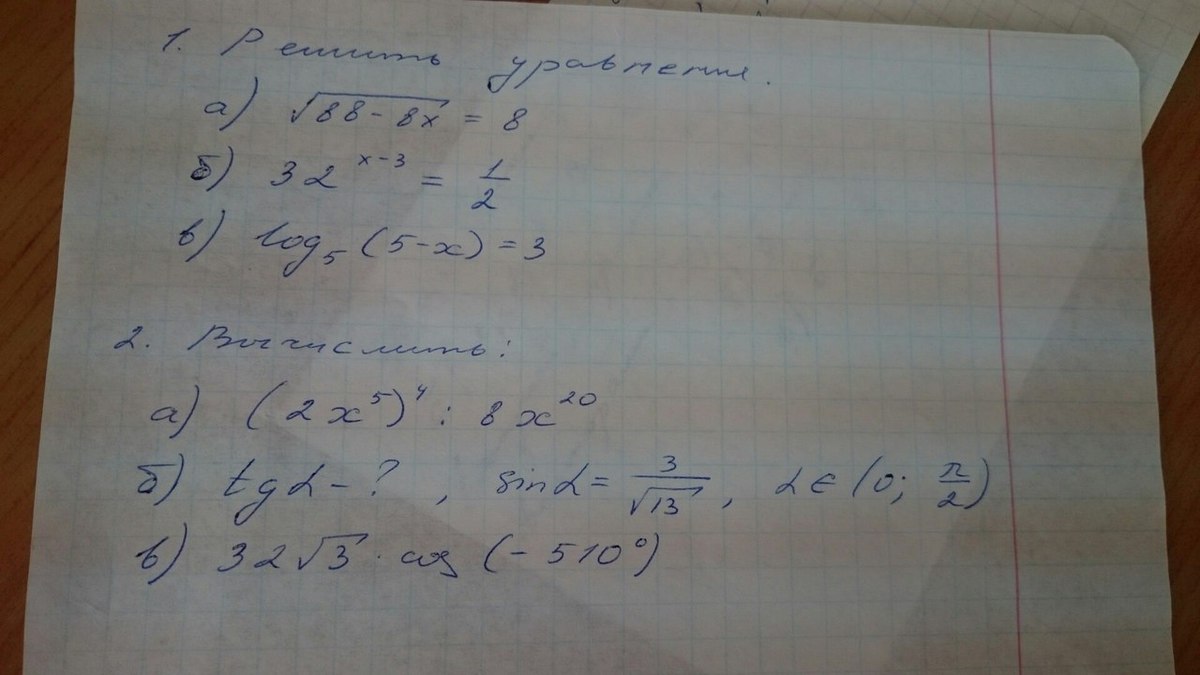 1. Решить уравнения.
а) √(88-8x) = 8
б) 32^(x-3) = 1/2
в) log₅(5-x) = 3
2. Вычислить:
а) (2x⁵)⁴ : 8x²⁰
б) tgα - ? , sinα = 3/√13, α ∈ (0; π/2)
в) 32√3 · cos (-510°)